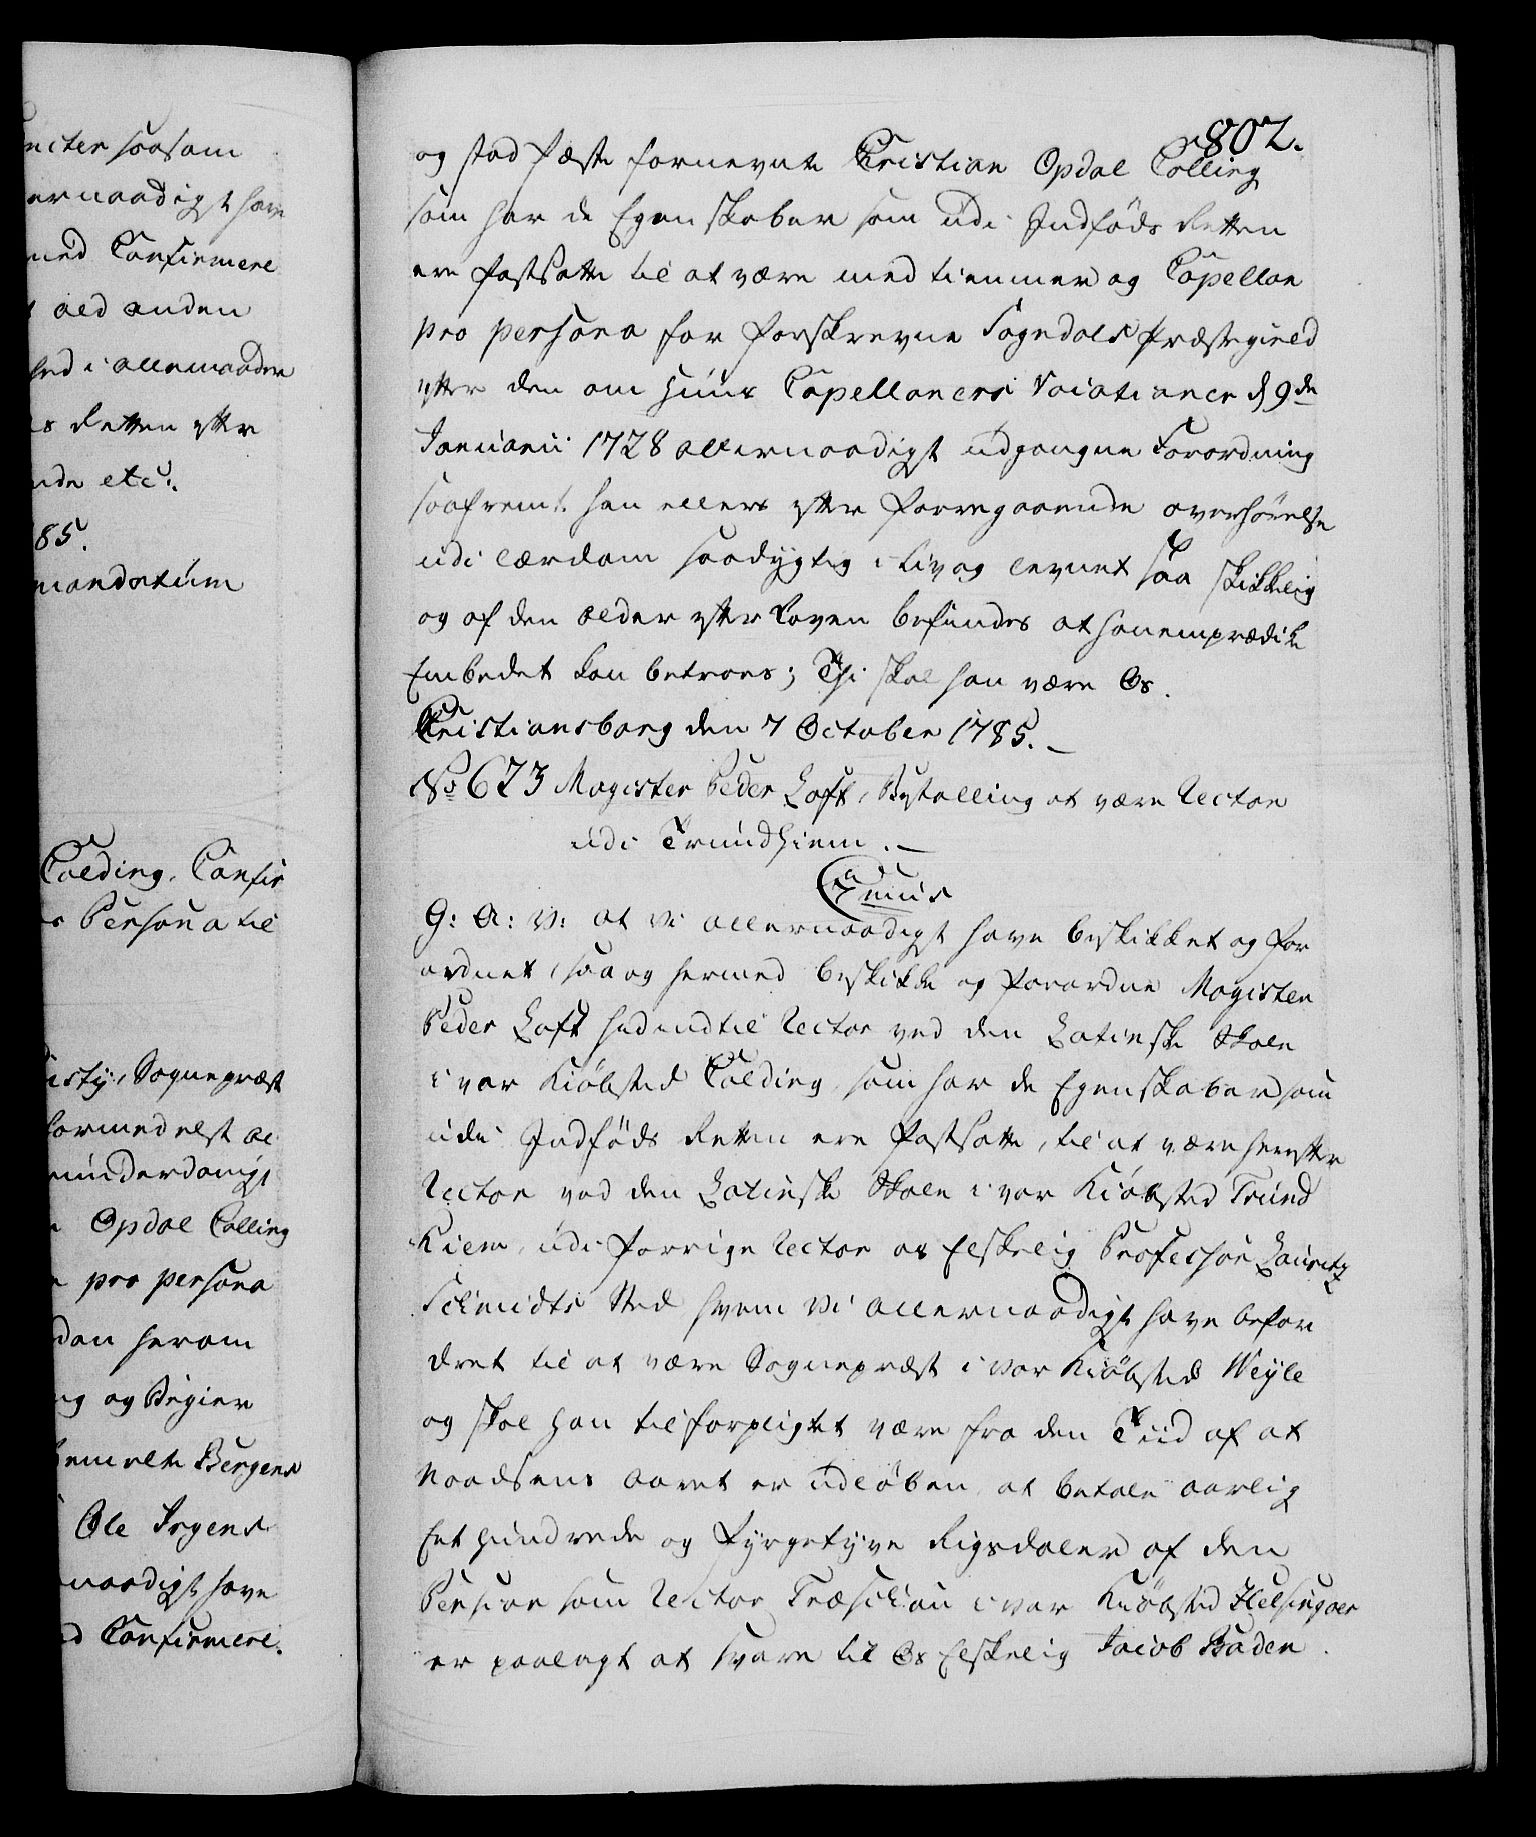 ncter saasom
ernaadigst have
med Confirmere
ald anden
hed i allemaader
s Retten efter
nde etc:.
85.
mandatum
Colding. Confir
Persona til
Sognepræst
formedelst al
underdanigst
Opdal Colling
pro persona
dan herom
ng og Begier
bemelte Bergens
Ole Irgens
naadigst have
d Confirmere.
802.
og stad fæste fornevnte Christian Opdal Colling
som har de Egenskaber som udi Indføds Retten
ere fastsatte til at være medtienner og Capellan
pro persona for forskrevne Sogndals Præstegield
efter den om Huus Capellaners Vocationer d 9de
Januarii 1728 allernaadigst udgangne Forordning
saafremt han ellers efter foregaaende overhørelse
udi lærdom saa dygtig i liv og levnet saa skikkelig
og af den alder efter Loven befindes at hanem prædike
Embedet kan betroes; Thi skal han være Os.
Christiansborg den 7 October 1785.
No 673 Magister Peder Loft, Bestalling at være Rector
udi Trundhiem.
Canut
G: A: V: at Vi allernaadigst have beskikket og for
ordnet, saa og hermed beskikke og forordne Magister
Peder Loft hidindtil Rector ved den Latinske Skole
i vor Kiøbsted Colding, som har de Egenskaber som
udi Indføds Retten ere fastsatte, til at være herefter
Rector ved den Latinske Skole i vor Kiøbsted Trund
hiem, udi forrige Rector os Elskelig Professor Lauritz
Schmidts Sted hvem Vi allernaadigst have befor
dret til at være Sognepræst i vor Kiøbsted Weyle
og skal han tilforpligtet være fra den Tiid af at
Naadsens aaret er udløben at betale aarlig
Et hundrede og Fyrgetyve Rigsdaler af den
Pension som Rector Træschou i vor Kiøbsted Helsingoer
er paalagt at svare til Os Elskelig Jacob Baden.